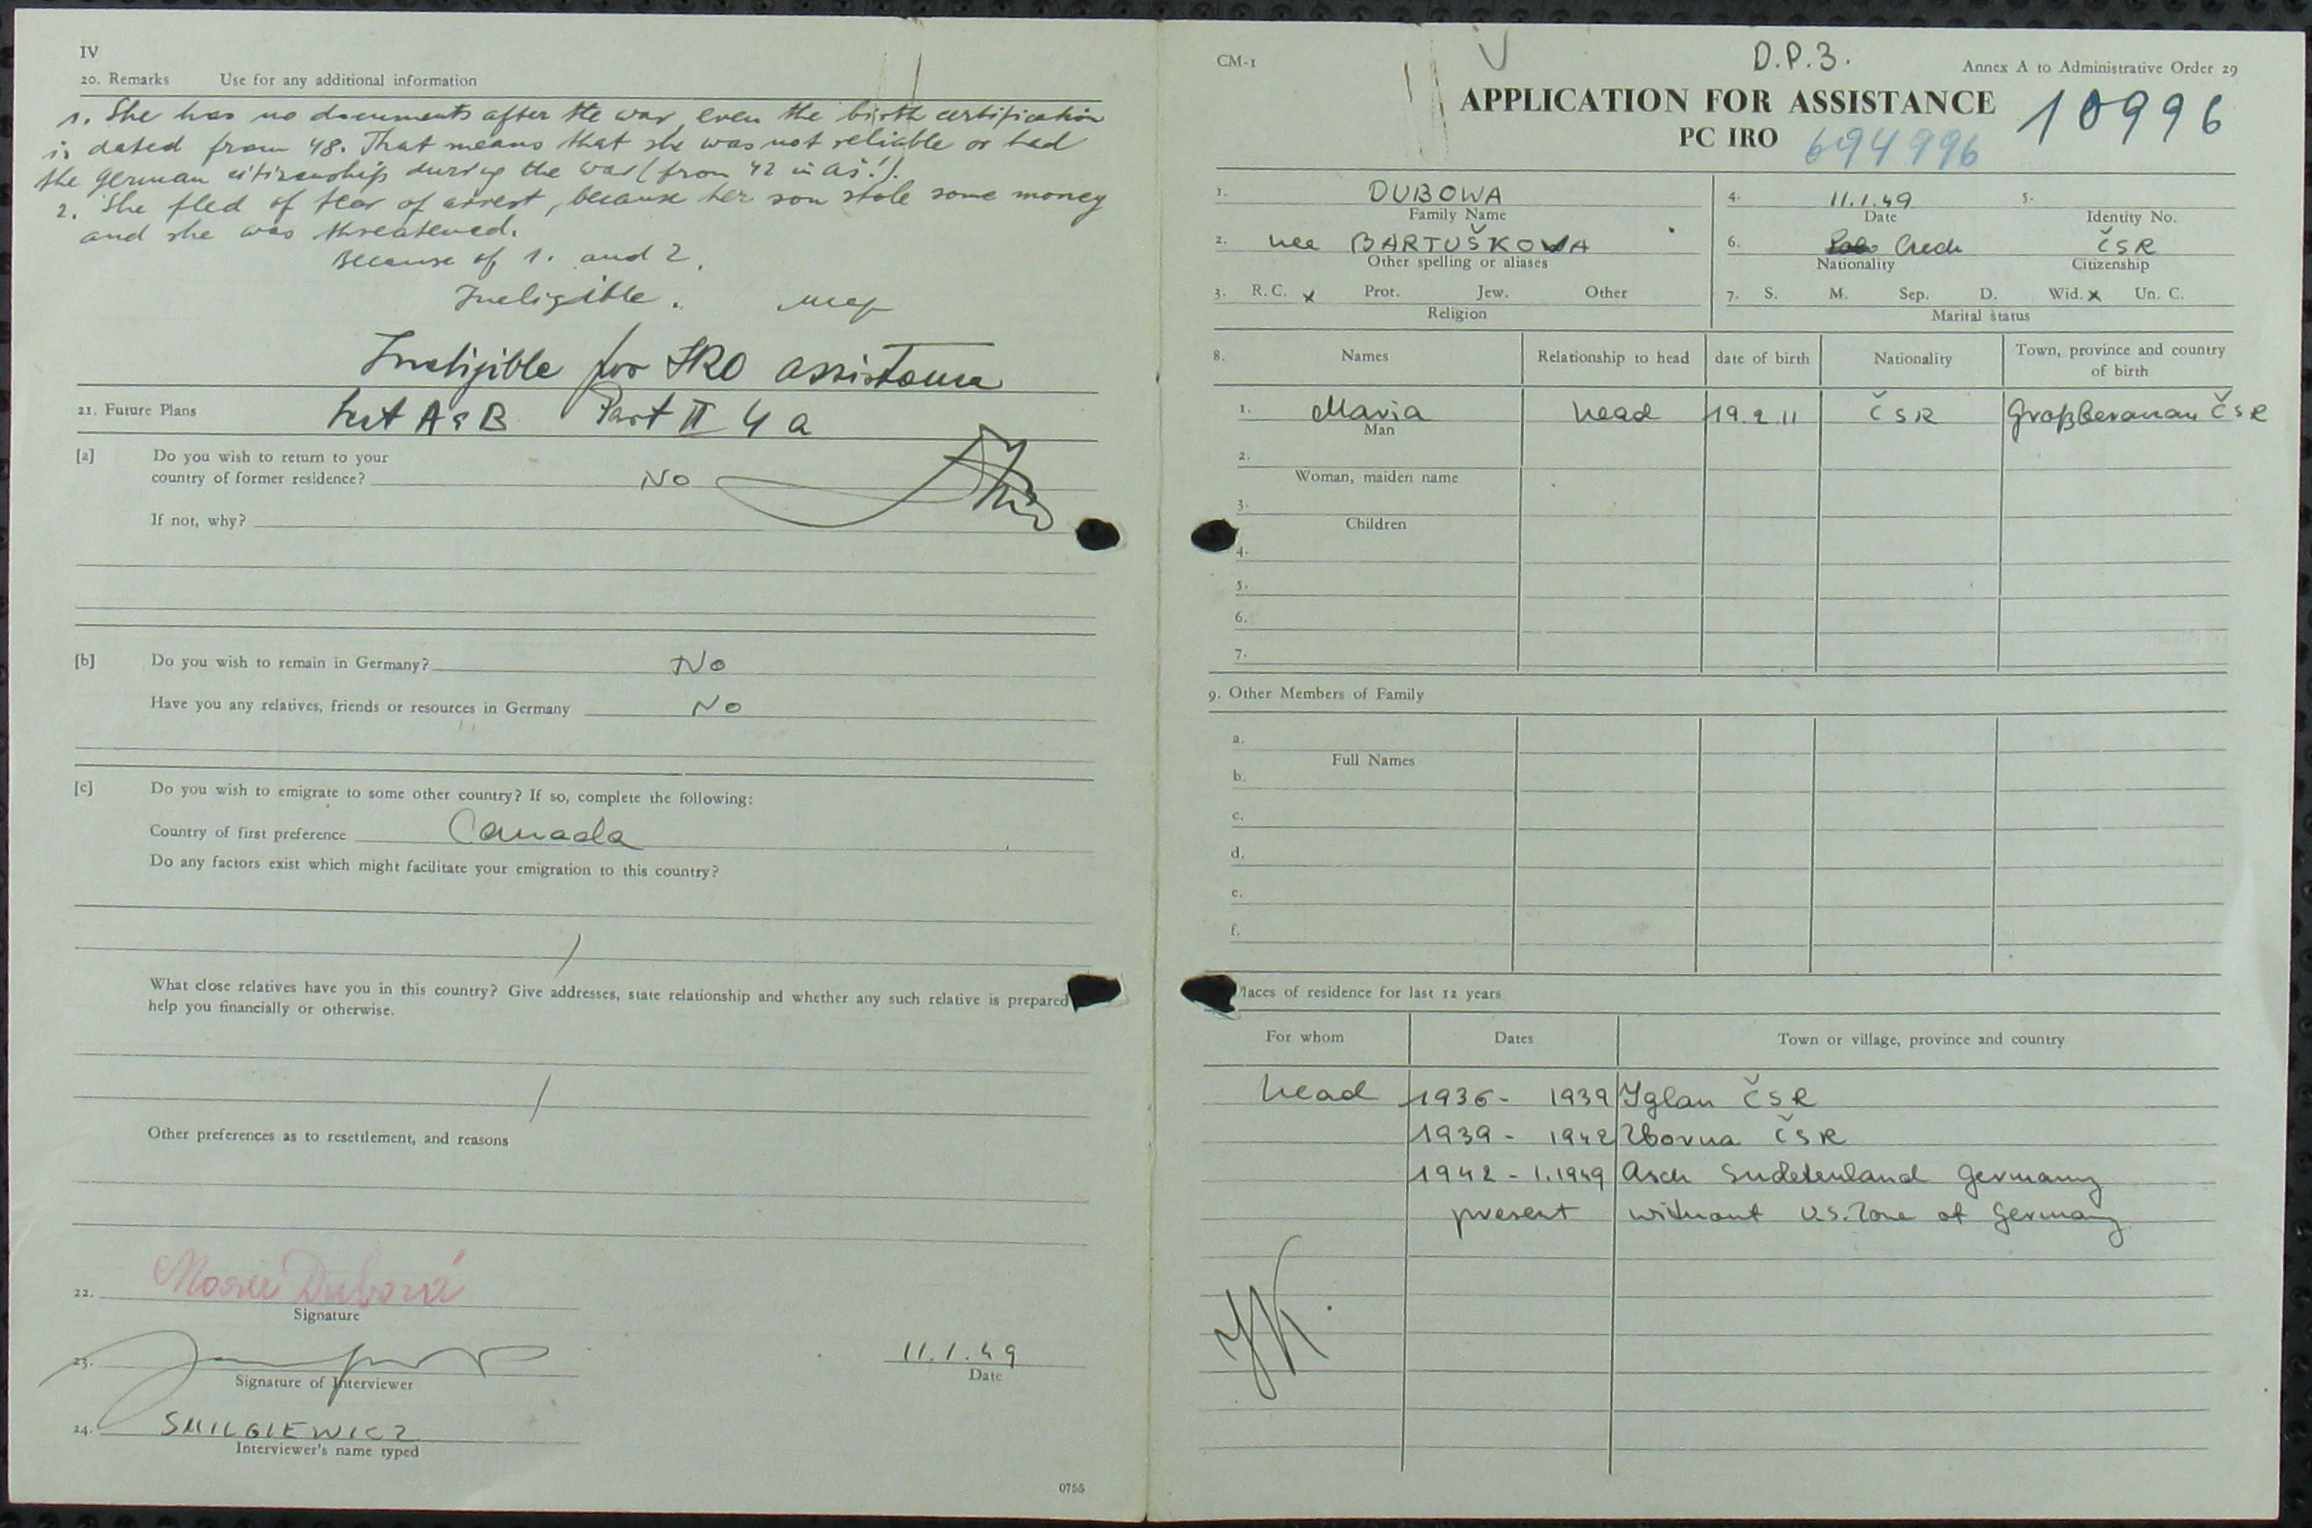 IV
20. Remarks Use for any additional information
1. She has no documents after the war, even the birth certification
is dated from 48. That means that she was not reliable or had
the german citizenship during the war (from 42 in aš!).
2. She fled of fear of arrest, because her son stole some money
and she was threatened.
Because of 1. and 2.
Ineligible.
Ineligible for IRO assistance
21. Future Plans
A & B Part II 4 a
[a] Do you wish to return to your
country of former residence? No
If not, why?
[b] Do you wish to remain in Germany? No
Have you any relatives, friends or resources in Germany No
[c] Do you wish to emigrate to some other country? If so, complete the following:
Country of first preference Canada
Do any factors exist which might facilitate your emigration to this country?
/
What close relatives have you in this country? Give addresses, state relationship and whether any such relative is prepared
help you financially or otherwise.
/
Other preferences as to resettlement, and reasons
22. Marie Dubová
Signature
23.
Signature of Interviewer
11.1.49
Date
24. SMILGIEWICZ
Interviewer's name typed
0755
CM-1
D.P.3.
Annex A to Administrative Order 29
APPLICATION FOR ASSISTANCE
10996
PC IRO
694996
1. DUBOWA
Family Name
4. 11.1.49
Date
5.
Identity No.
2. nee BARTUŠKOWA
Other spelling or aliases
6. Czech
Nationality
ČSR
Citizenship
3. R.C. x Prot. Jew. Other
Religion
7. S. M. Sep. D. Wid. x Un. C.
Marital status
8. Names Relationship to head date of birth Nationality Town, province and country
of birth
1. Maria head 19.2.11 ČSR Großberanau ČSR
Man
2.
Woman, maiden name
3.
Children
4.
5.
6.
7.
9. Other Members of Family
a.
Full Names
b.
c.
d.
e.
f.
laces of residence for last 12 years
For whom Dates Town or village, province and country
head 1936 - 1939 Iglau ČSR
1939 - 1942 Zborna ČSR
1942 - 1.1949 Asch Sudetenland Germany
present without U.S. Zone of Germany